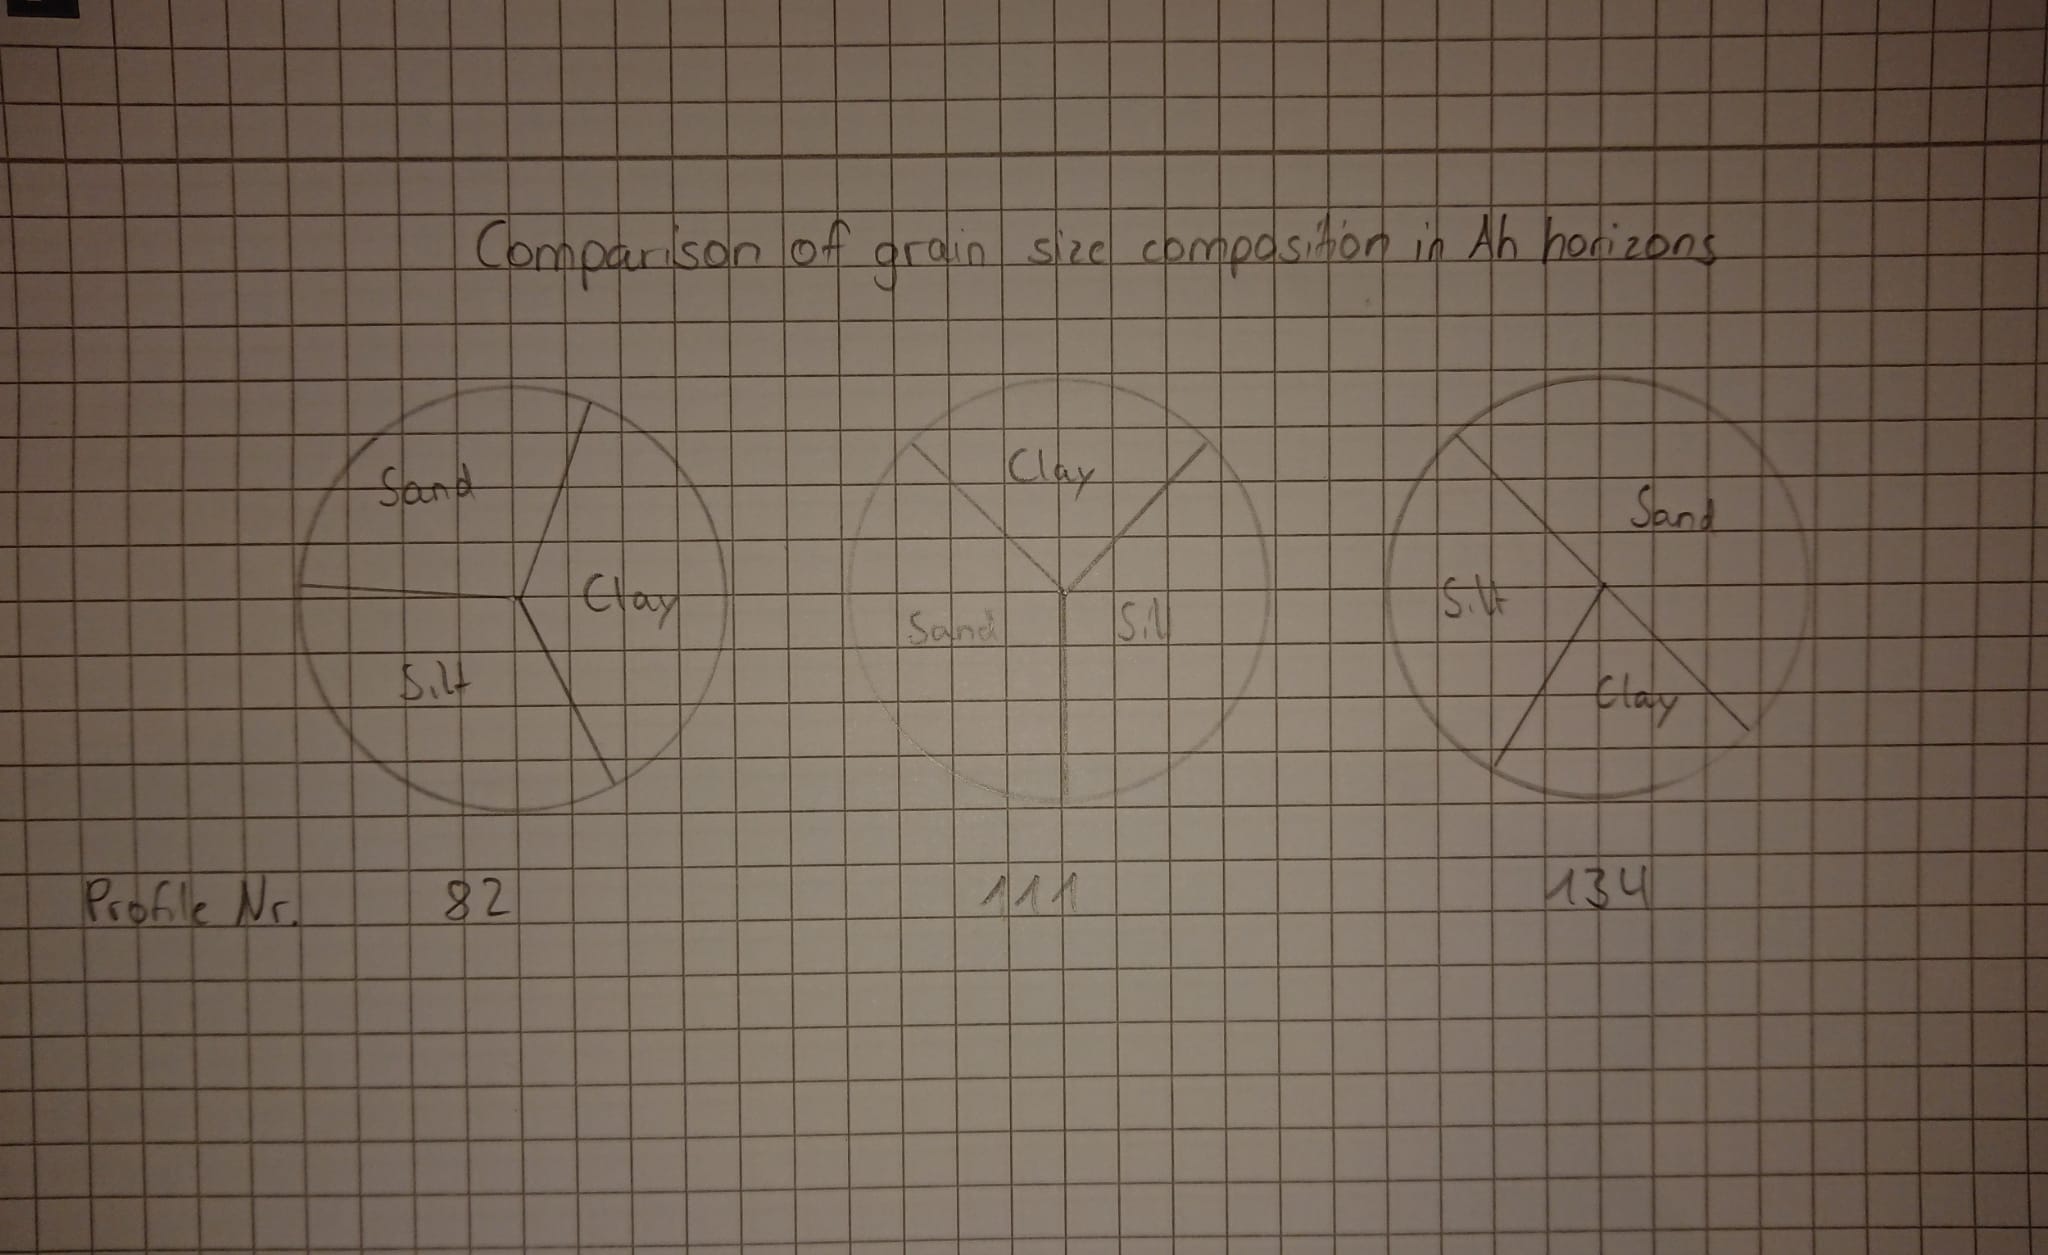 Comparison of grain size composition in Ah horizons
Sand
Clay
Silt
Clay
Sand
Sil
Sand
Silt
Clay
Profile Nr. 82 111 134